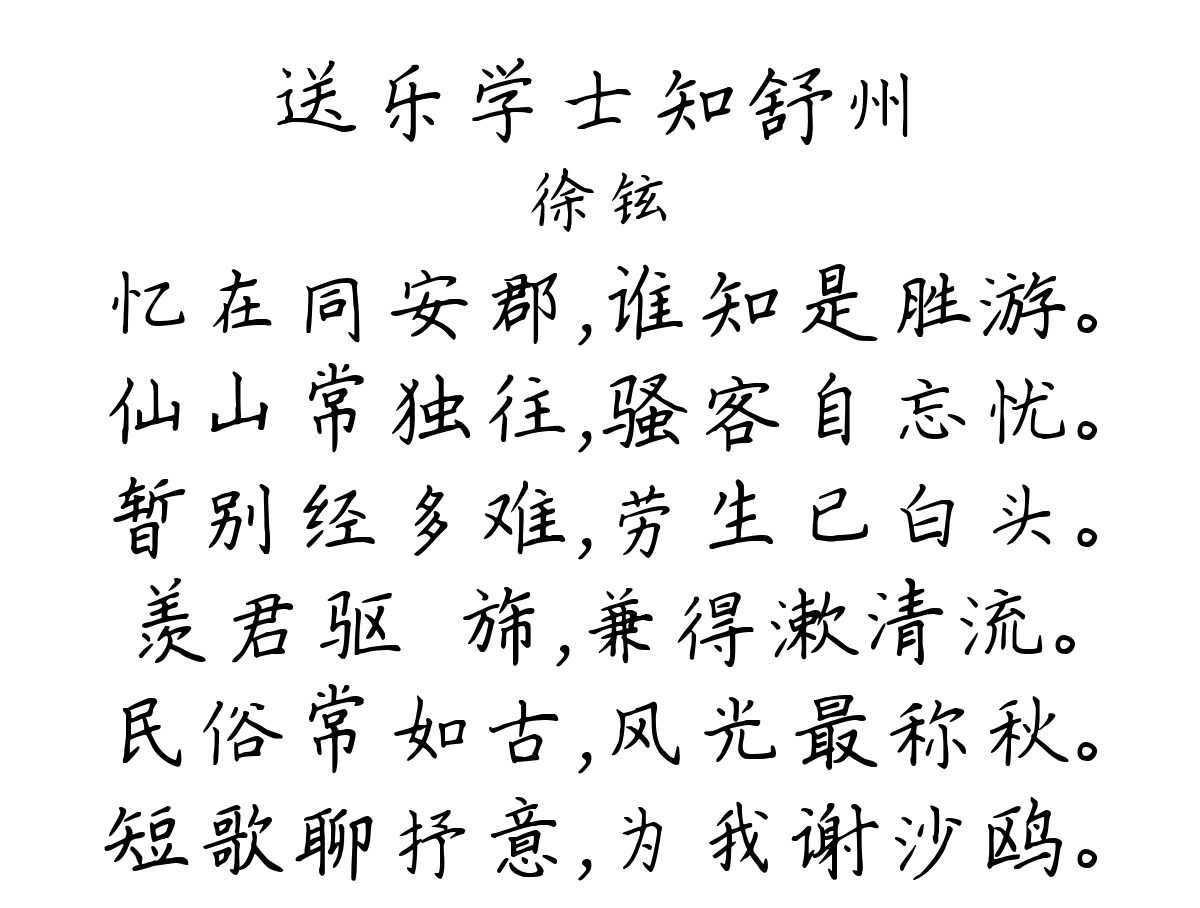 送乐学士知舒州
徐铉
忆在同安郡,谁知是胜游。
仙山常独往,骚客自忘忧。
暂别经多难,劳生已白头。
羡君驱 斾,兼得漱清流。
民俗常如古,风光最称秋。
短歌聊抒意,为我谢沙鸥。